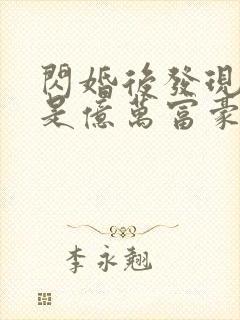 閃婚後發現
是億萬富豪
李永翹